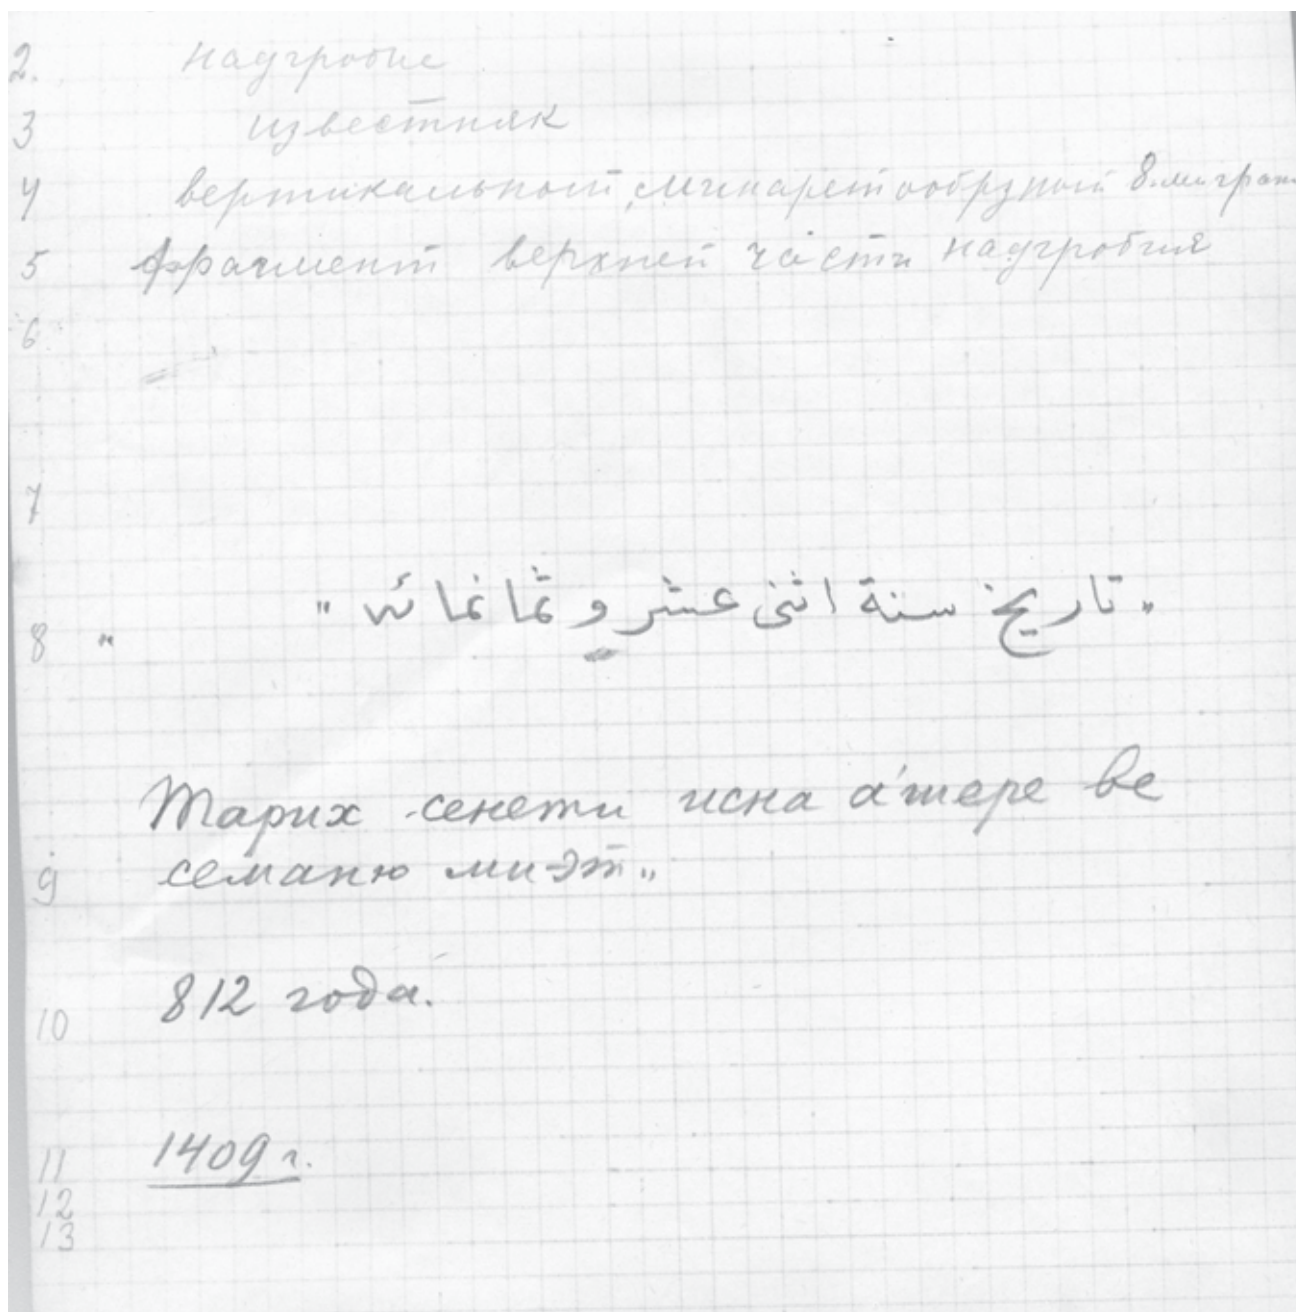 2. надгробие
3 известняк
4 вертикальный, минаретообрзный 8.ми гран
5 фрагмент верхней части надгробия
6
7
8 " „تاريخ سنة اثنى عشر و ثمانمائه"
Тарих сенети исна а'шере ве
9 семаню ми-эт„
10 812 года.
11 1409 г.
12
13